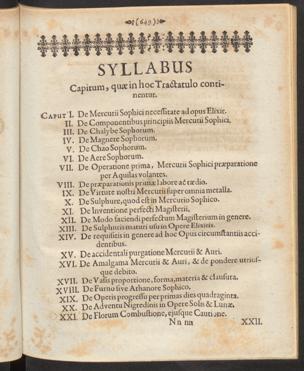 (649)
SYLLABUS
Capitum, quæ in hoc Tractatulo conti-
nentur.
CAPUT I. De Mercurii Sophici necessitate ad opus Elixir.
II. De Componentibus principiis Mercurii Sophici.
III. De Chalybe Sophorum.
IV. De Magnete Sophorum.
V. De Chao Sophorum.
VI. De Aere Sophorum.
VII. De Operatione prima, Mercurii Sophici præparatione
per Aquilas volantes.
VIII. De præparationis primæ labore ac tædio.
IX. De Virtute nostri Mercurii super omnia metalla.
X. De Sulphure, quod est in Mercurio Sophico.
XI. De Inventione perfecti Magisterii.
XII. De Modo faciendi perfectum Magisterium in genere.
XIII. De Sulphuris maturi usu in Opere Elixiris.
XIV. De requisitis in genere ad hoc Opus circumstantiis acci-
dentibus.
XV. De accidentali purgatione Mercurii & Auri.
XVI. De Amalgama Mercurii & Auri, & de pondere utrius-
que debito.
XVII. De Vasis proportione, forma, materia & clausura.
XVIII. De Furno sive Athanore Sophico.
XIX. De Operis progressu per primas dies quadraginta.
XX. De Adventu Nigredinis in Opere Solis & Lunæ.
XXI. De Florum Combustione, ejusque Cautione.
Nn nn XXII.